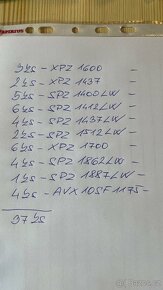 3ks - XPZ 1600 -
2ks - XPZ 1437 -
5ks - SPZ 1400LW -
6ks - SPZ 1412LW -
4ks - SPZ 1437LW -
2ks - SPZ 1512LW -
6ks - XPZ 1700 -
4ks - SPZ 1862LW -
1ks - SPZ 1887LW -
4ks - AVX 10SF 1175 -
37ks